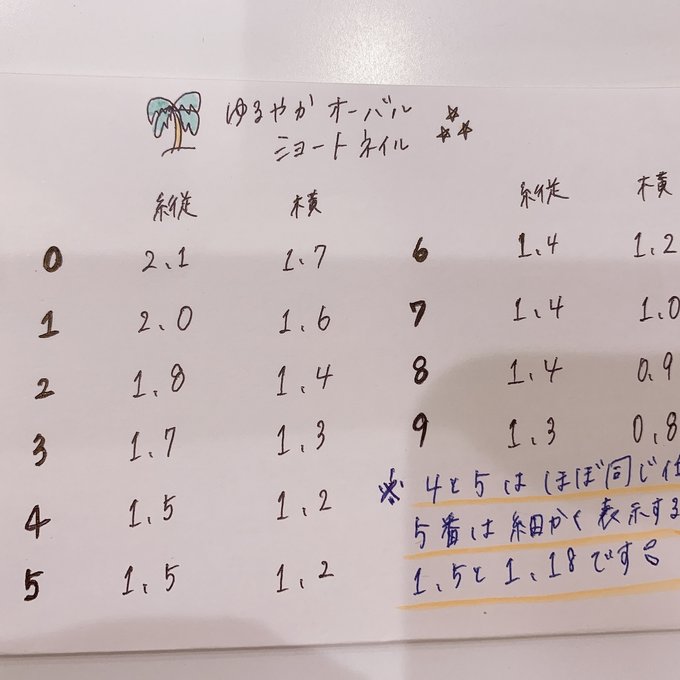 ゆるやかオーバル
ショートネイル
縦 横
0 2.1 1.7
1 2.0 1.6
2 1.8 1.4
3 1.7 1.3
4 1.5 1.2
5 1.5 1.2
縦 横
6 1.4 1.2
7 1.4 1.0
8 1.4 0.9
9 1.3 0.8
※ 4と5はほぼ同じ
5番は細かく表示する
1.5と1.18です